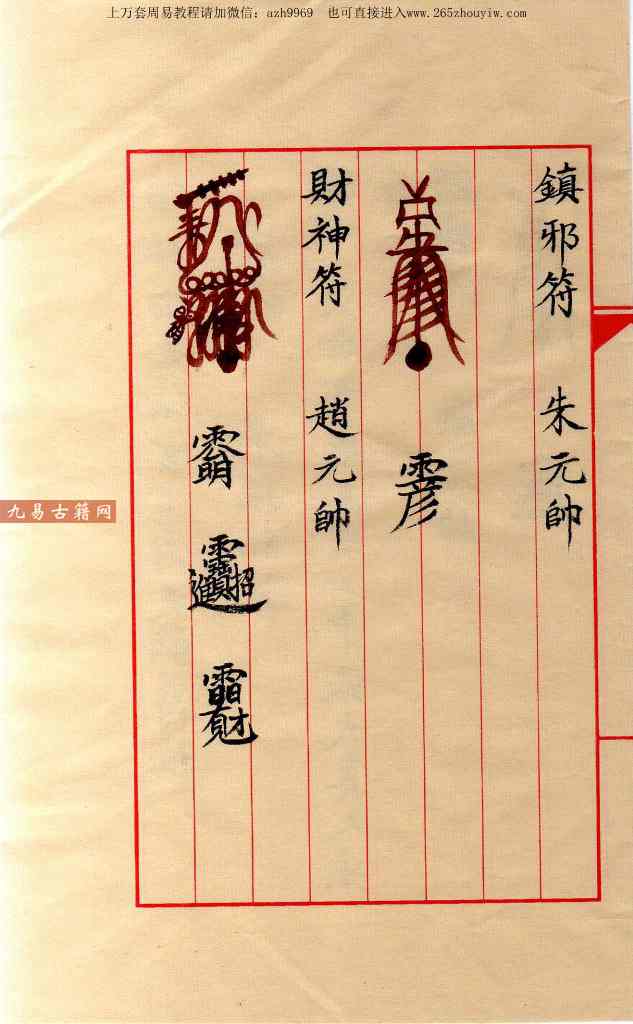 上万套周易教程请加微信：azh9969 也可直接进入www.265zhouyiw.com
鎮邪符 朱元帥
財神符 趙元帥
九易古籍网